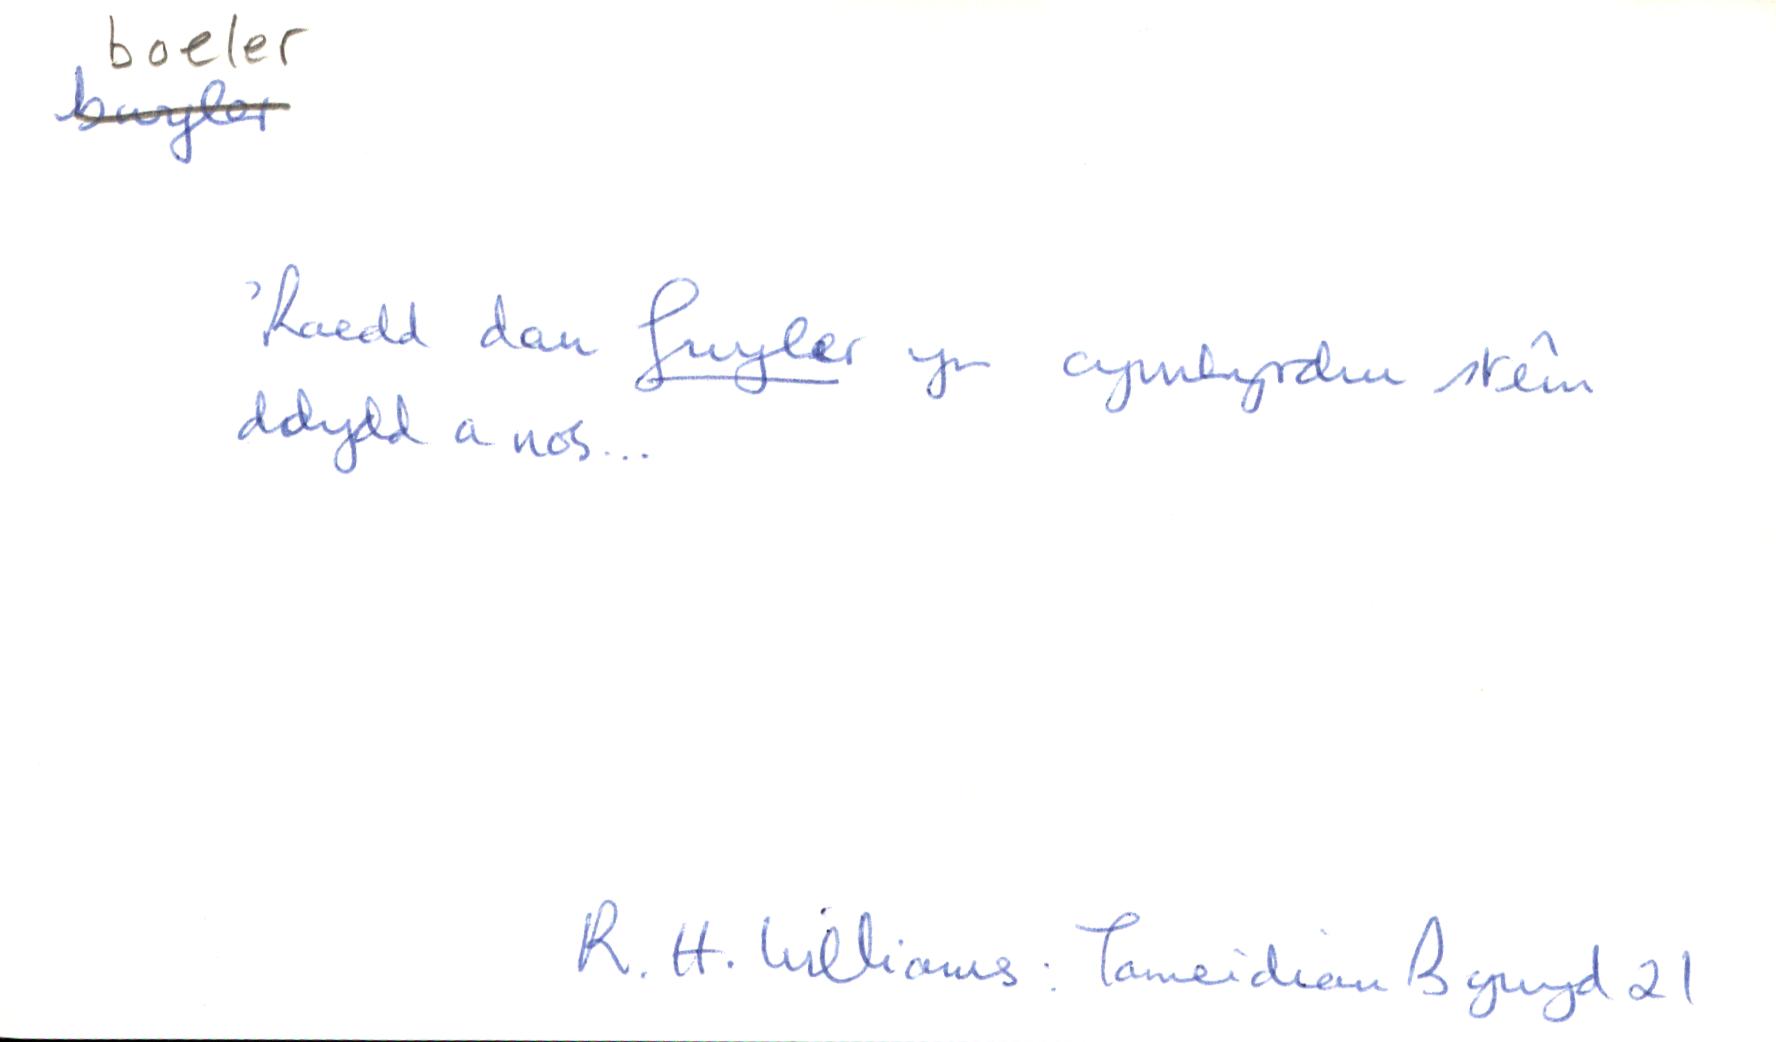 boeler
bwyler
'Raedd dau fwyler yn cymhyrdu stêm
ddydd a nos...
R. H. Williams: Tameidiau Bywyd 21